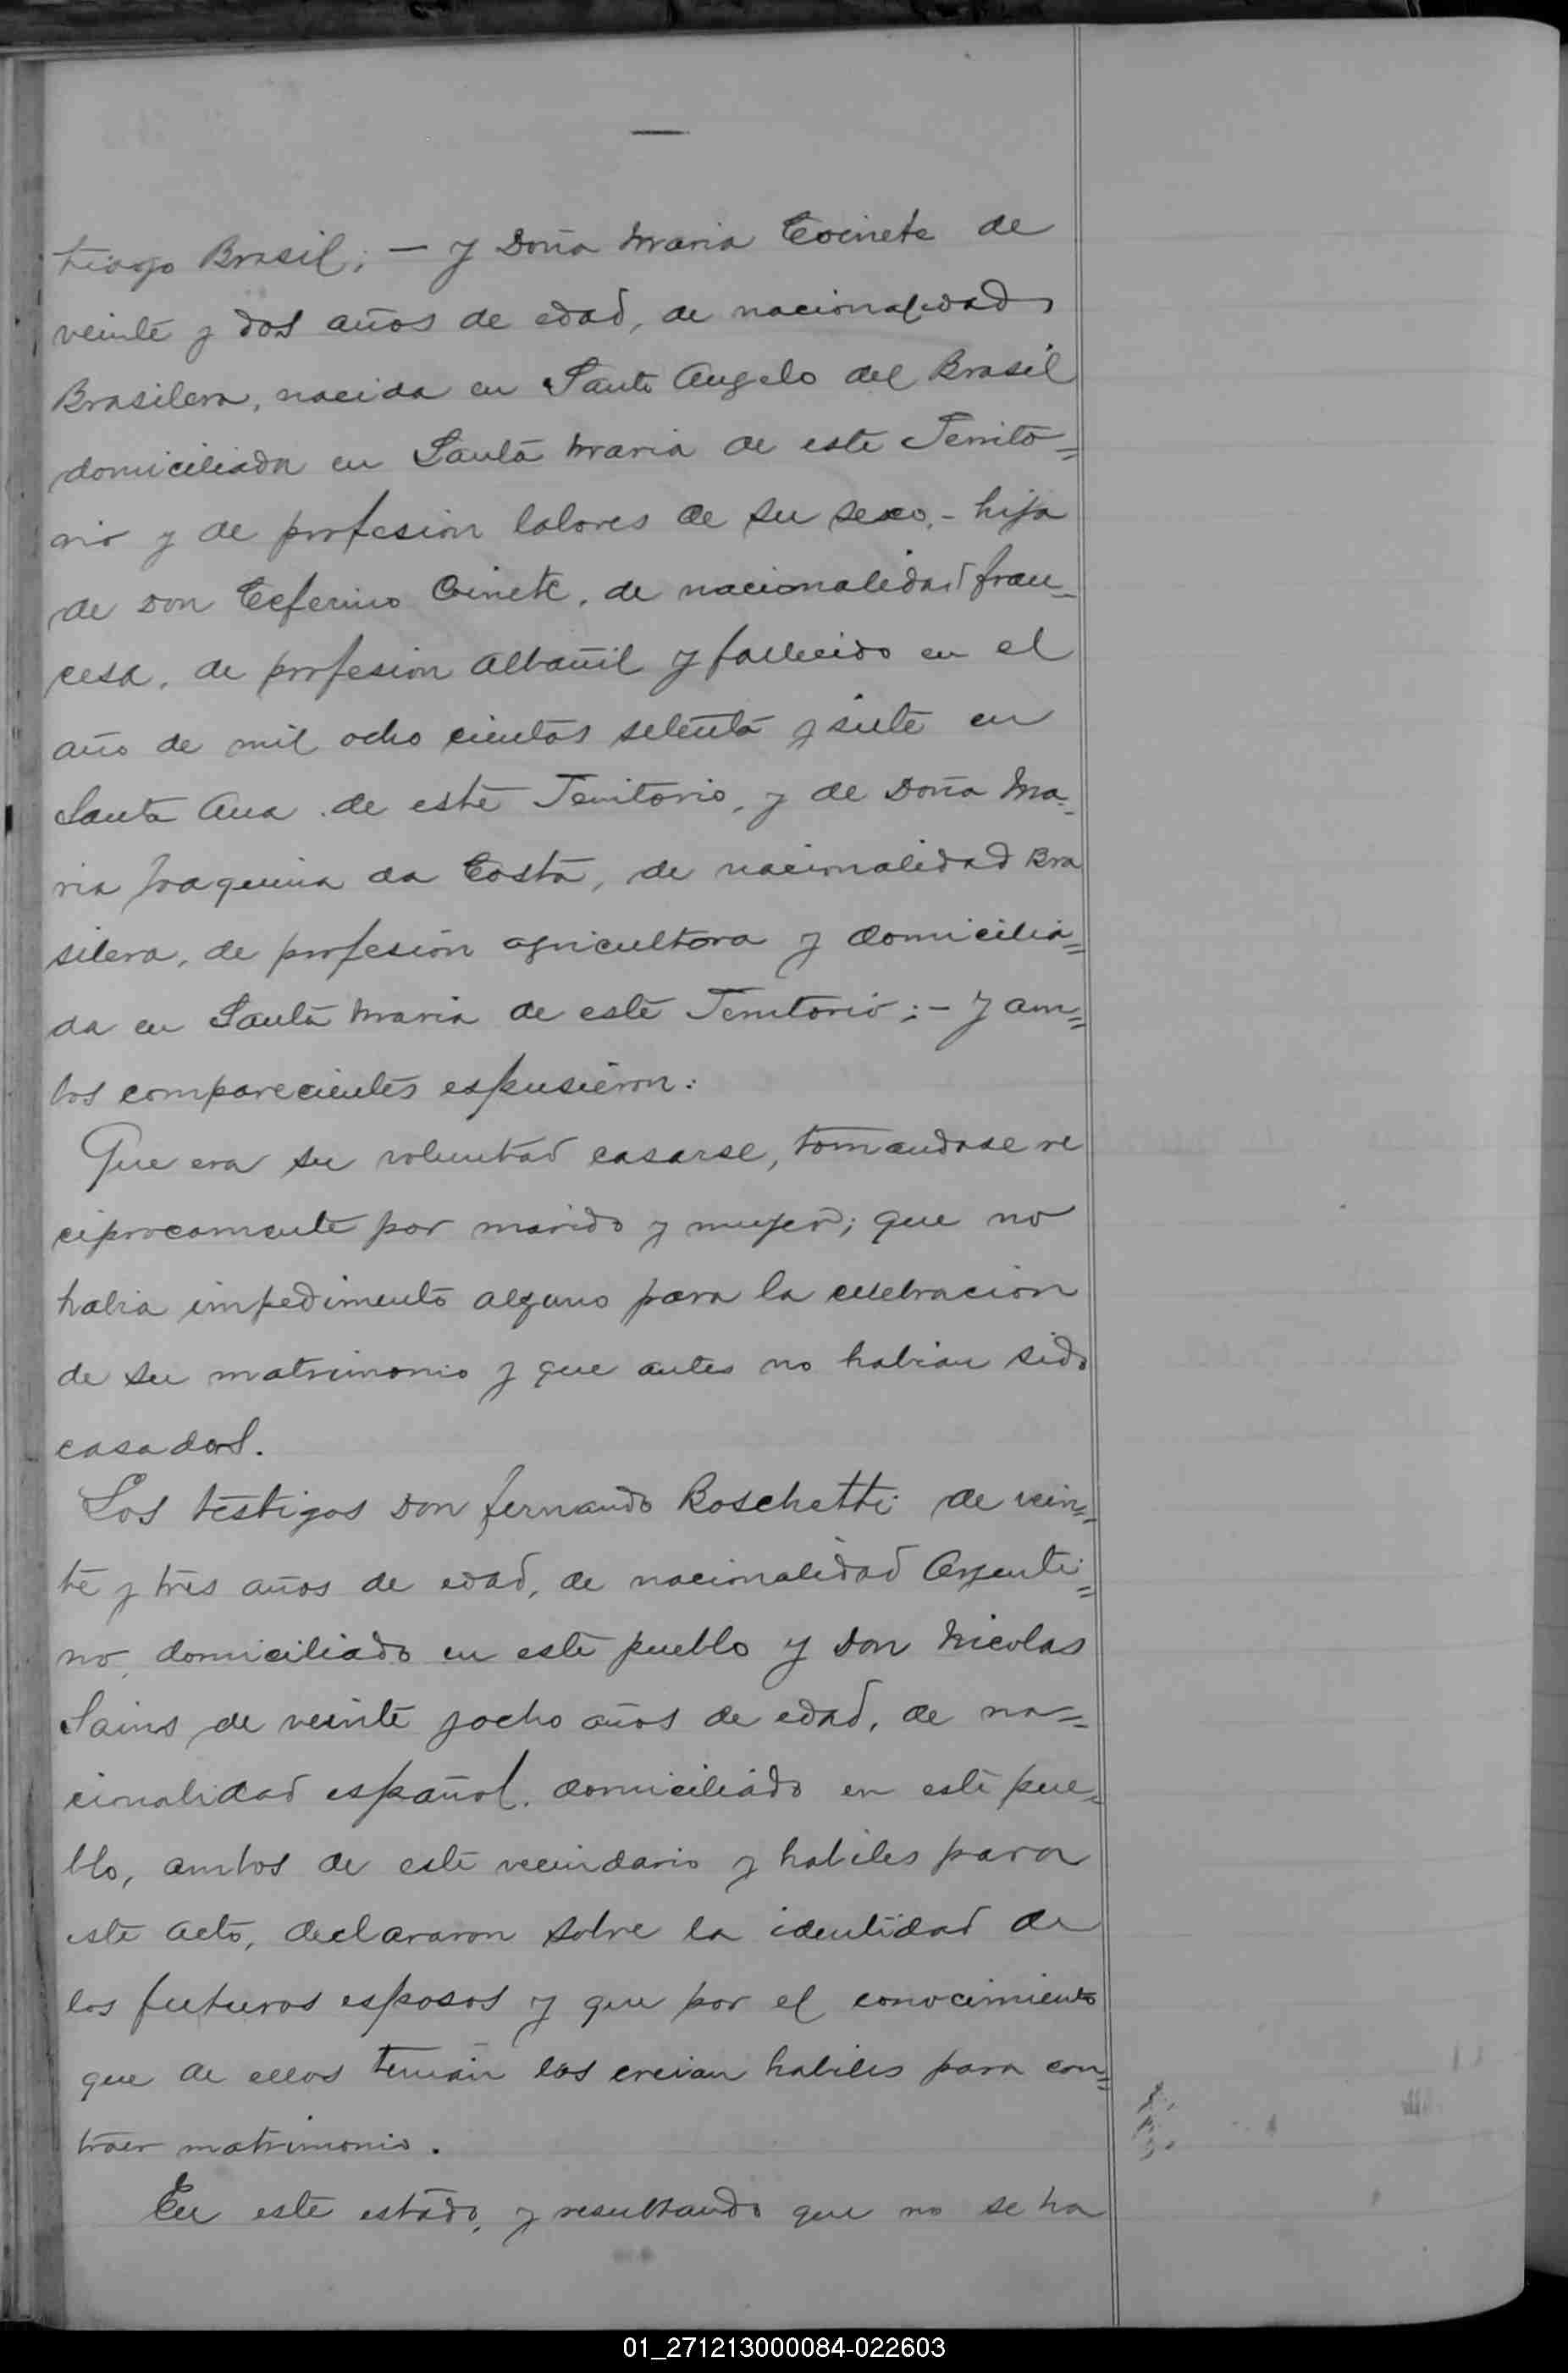 tiago Brasil; — y Doña Maria Coinete de
veinte y dos años de edad, de nacionalidad
Brasilera, nacida en Santo Angelo del Brasil
domiciliada en Santa Maria de este Territo=
rio y de profesion labores de su sexo, - hija
de Don Ceferino Coinete, de nacionalidad fran_
cesa, de profesion albañil y fallecido en el
año de mil ocho cientos setenta y siete en
Santa Ana de este Territorio, y de Doña Ma_
ria Joaquina da Costa, de nacionalidad Bra
silera, de profesion agricultora y domicilia=
da en Santa Maria de este Territorio; - y am=
bos comparecientes espusieron:
Que era su voluntad casarse, tomandose re
ciprocamente por marido y mujer; que no
habia impedimento alguno para la celebracion
de su matrimonio y que antes no habian sido
casados.
Los testigos Don Fernando Boschetti de vein=
te y tres años de edad, de nacionalidad Argenti=
no, domiciliado en este pueblo y Don Nicolas
Sains de veinte y ocho años de edad, de na=
cionalidad español, domiciliado en este pue=
blo, ambos de este vecindario y habiles para
este acto, declararon sobre la identidad de
los futuros esposos y que por el conocimiento
que de ellos tenian los creian habiles para con=
traer matrimonio.
En este estado, y resultando que no se ha
01_271213000084-022603